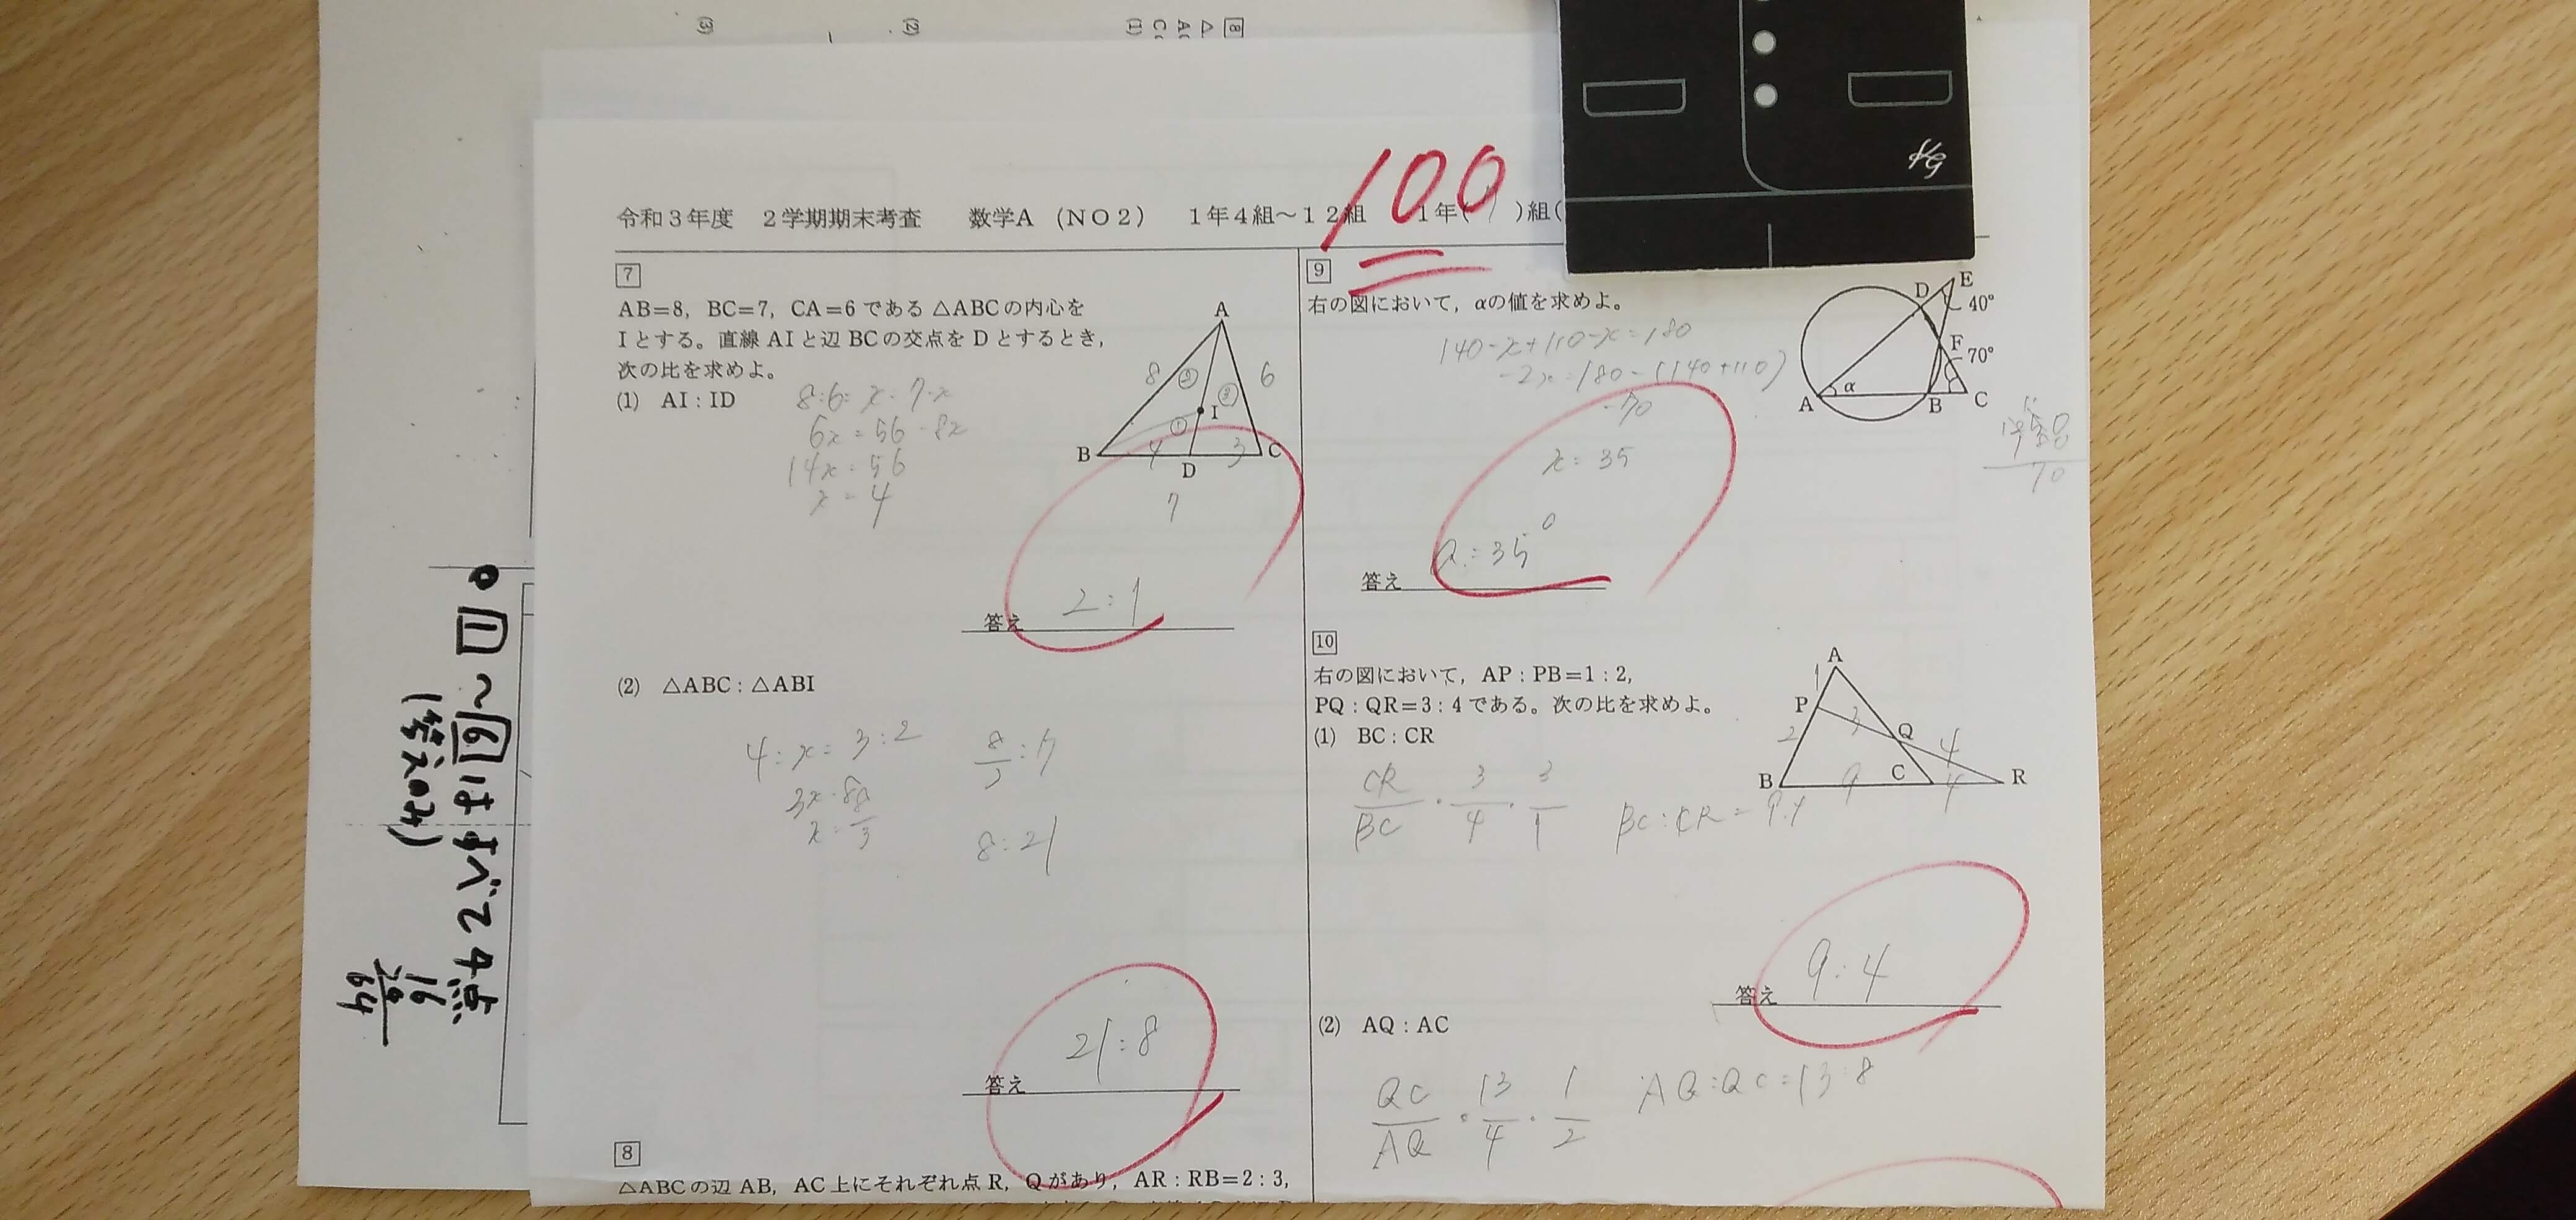 (3) (2) (1)
8
令和3年度 2学期期末考査 数学A (NO2) 1年4組～12組 1年( )組(
100
7
AB=8, BC=7, CA=6 である △ABCの内心を
Iとする。直線 AIと辺 BCの交点を D とするとき,
次の比を求めよ。
(1) AI : ID
8:6=x:7-x
6x=56-8x
14x=56
x=4
A
8 ② ③ 6
I
①
B 4 D 3 C
7
答え 2:1
(2) △ABC : △ABI
4:x=3:2
8/3:7
8:21
答え 21:8
8
△ABCの辺 AB, AC上にそれぞれ点 R, Qがあり, AR : RB=2 : 3,
9
右の図において, αの値を求めよ。
140-x+110-x=180
-2x=180-(140+110)
-70
x=35
D E
40°
F
70°
A α B C
70
答え α=35°
10
右の図において, AP : PB=1 : 2,
PQ : QR=3 : 4である。次の比を求めよ。
(1) BC : CR
A
1
P 3 Q
2 4
B 9 C 4 R
CR/BC・3/4・3/1
BC:CR=9:4
答え 9:4
(2) AQ : AC
QC/AQ・13/4・1/2
AQ:QC=13:8
1～6はすべて4点
(答えのみ)
16
64